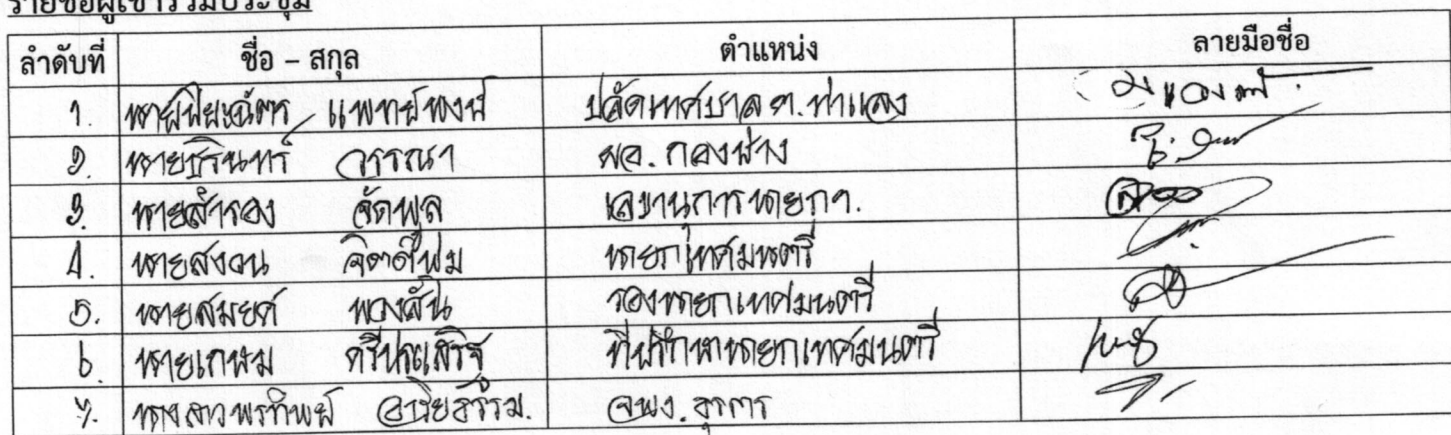 รายชื่อผู้เข้าร่วมประชุม
ลำดับที่ ชื่อ – สกุล ตำแหน่ง ลายมือชื่อ
๑. นายปิยะฉัตร แพทย์พงษ์ ปลัดเทศบาล ต.ท่าแลง
๒. นายธีรินทร์ วรรณา ผอ. กองช่าง
๓. นายสำรอง จัดพูล เลขานุการนายกฯ.
๔. นายสงวน นายกเทศมนตรี
๕. นายสมยศ รองนายกเทศมนตรี
๖. นายเกษม ที่ปรึกษานายกเทศมนตรี
๗. นางสาวพรทิพย์ จพง. ธุรการ